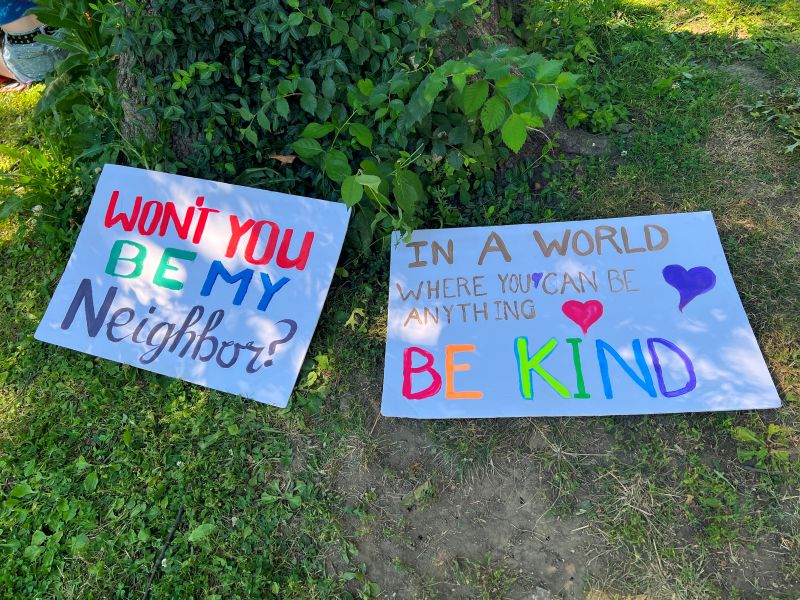 WON'T YOU
BE MY
Neighbor?
IN A WORLD
WHERE YOU CAN BE
ANYTHING
BE KINd